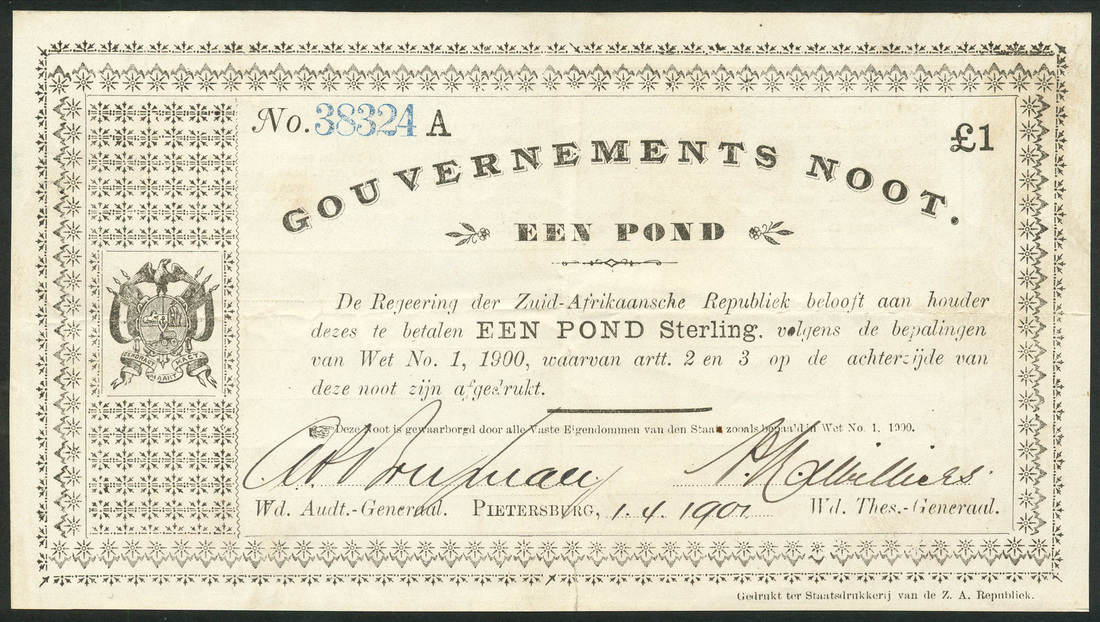 No. 38324 A
£1
GOUVERNEMENTS NOOT.
EEN POND
De Regeering der Zuid-Afrikaansche Republiek belooft aan houder
dezes te betalen EEN POND Sterling, volgens de bepalingen
van Wet No. 1, 1900, waarvan artt. 2 en 3 op de achterzijde van
deze noot zijn afgedrukt.
EENDRAGT MAAKT MAGT
Deze Noot is gewaarborgd door alle Vaste Eigendommen van den Staat zooals bepaa'd in Wet No. 1, 1900.
Wd. Audt.-Generaal. PIETERSBURG, 1.4.1901 Wd. Thes.-Generaal.
Gedrukt ter Staatsdrukkerij van de Z. A. Republiek.